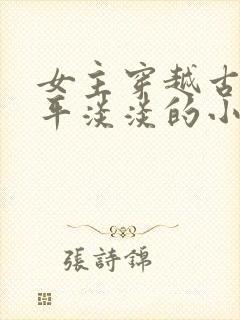 女主穿越古
平淡淡的小
張詩錦